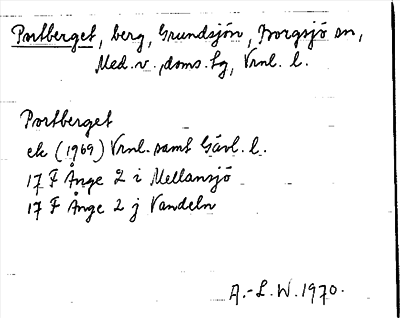 Portberget, berg, Grundsjön, Borgsjö sn,
Med. v. doms. tg, Vrnl. l.
Portberget
ek (1969) Vrnl. samt Gävl. l.
17 F Ånge 2 i Mellansjö
17 F Ånge 2 j Vandeln
A.-L. W. 1970.